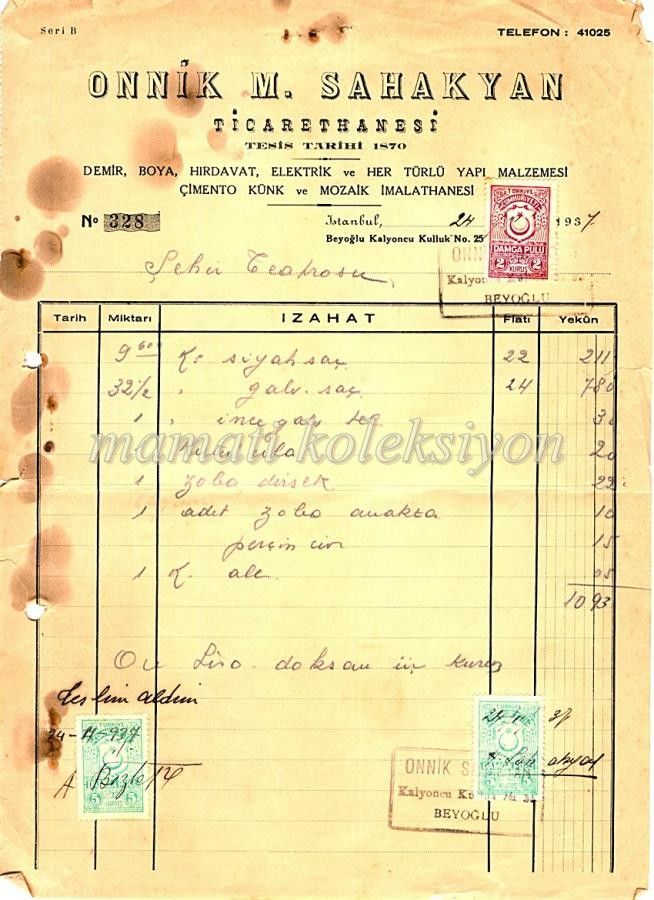 Seri B TELEFON : 41025
ONNİK M. SAHAKYAN
TİCARETHANESİ
TESİS TARİHİ 1870
DEMİR, BOYA, HIRDAVAT, ELEKTRİK ve HER TÜRLÜ YAPI MALZEMESİ
ÇİMENTO KÜNK ve MOZAİK İMALATHANESİ
No 328 İstanbul, 24 1937
Beyoğlu Kalyoncu Kulluk No. 25
TÜRKİYE
CUMHURİYETİ
DAMGA PULU
2 KURUŞ 2
ONN
Kalyon
BEYOĞLU
Şehir Teatrosu
Tarih Miktarı İZAHAT Fiatı Yekûn
9 600 K: siyah saç 22 211
32 1/2 " galv. saç 24 780
1 " ince 30
20
1 zoba dirsek 22
1 adet zoba 10
perçin 15
1 K. 05
1093
mamati koleksiyon
On Lira doksan üç kuruş
Teslim aldım
24-11-937
TÜRKİYE
5 KURUŞ 5
TÜRKİYE
37
ONNİK S
Kalyoncu Ku
BEYOĞLU